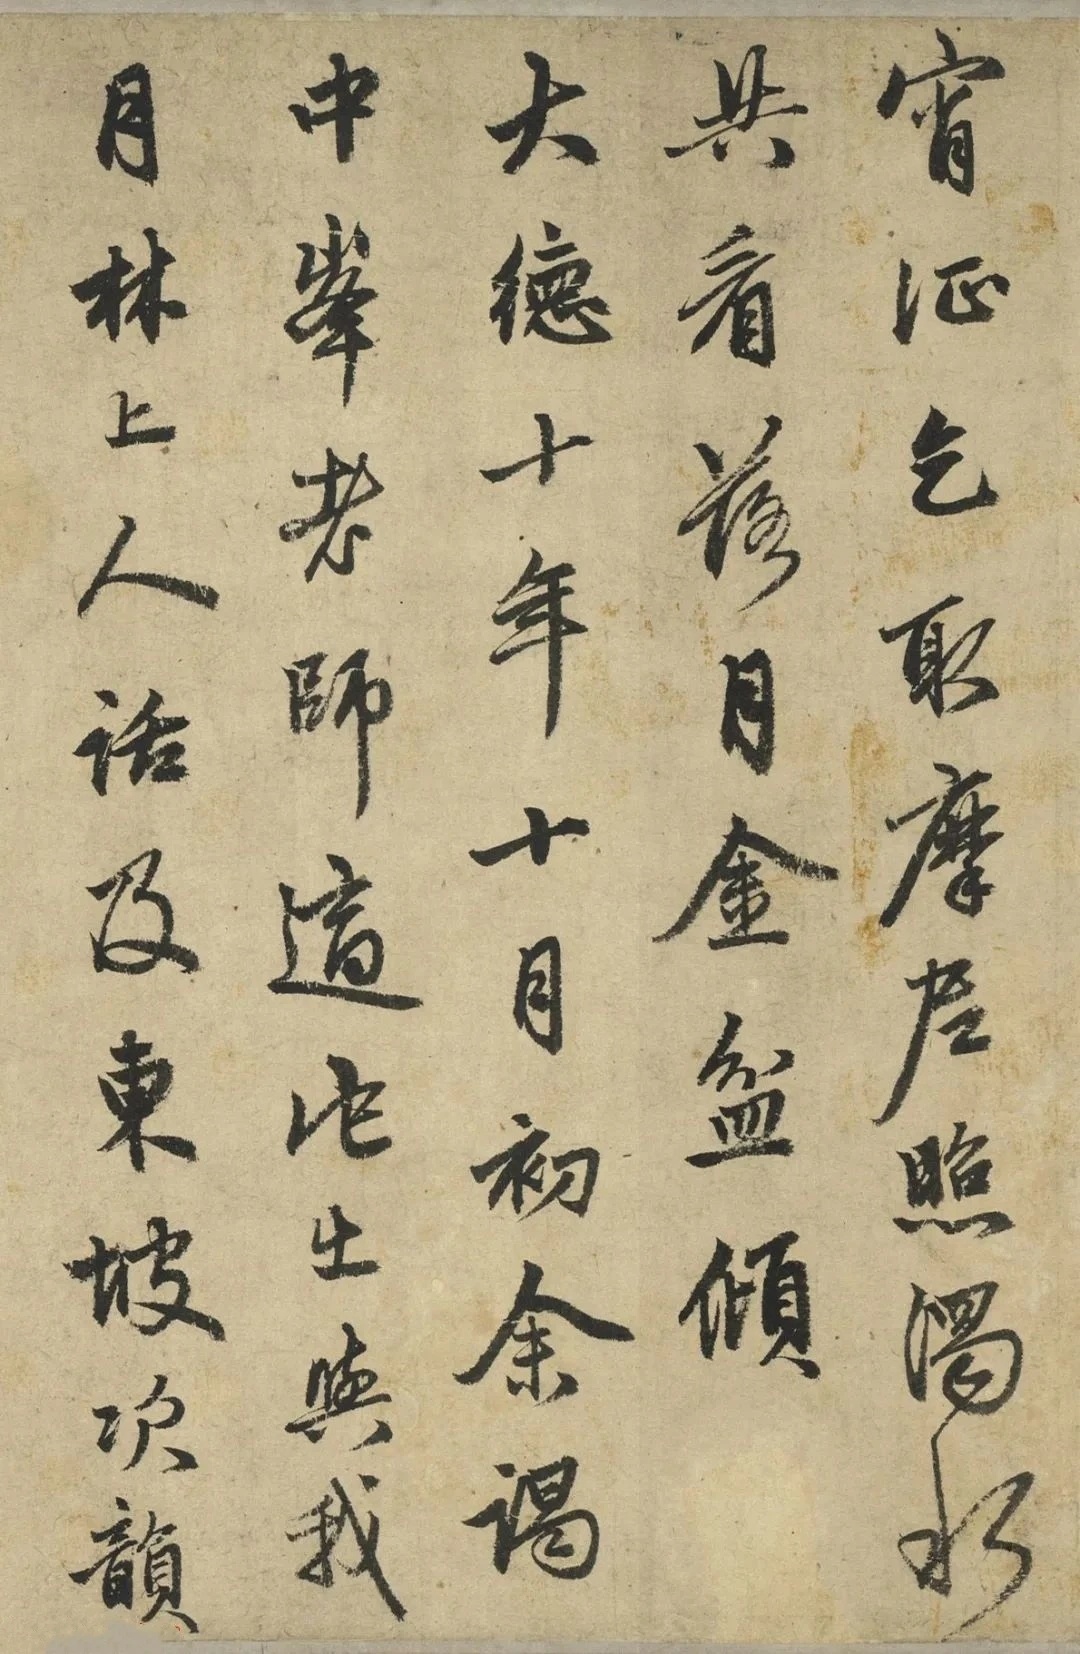 宵征乞取摩尼照濁水
共看落月金盆傾
大德十年十月初余謁
中峯老師道此生與我
月林上人話及東坡次韻